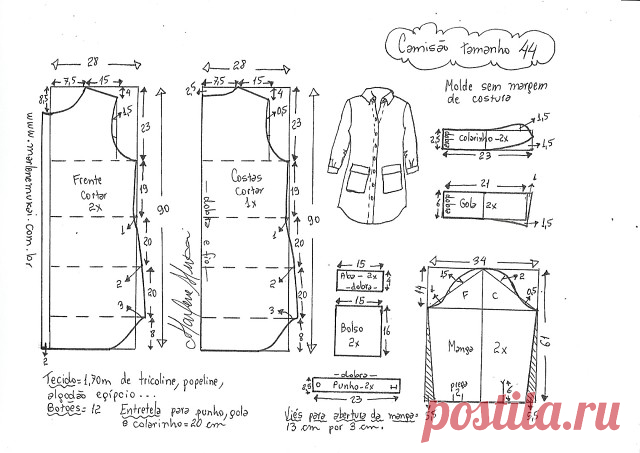 Camisão tamanho 44
Molde sem margem
de costura
28
7,5 15
8,5
4
1,5
23
19
20
20
8
90
1
2
3
2
Frente
Cortar
2x
www.marlenemukai.com.br
28
7,5 15
2,5
4
0,5
23
19
20
20
8
90
1
2
3
Costas
Cortar
1x
dobra e fio
Marlene Mukai
1,5
colarinho-2x
2,5
23
1,5
21
Gola 2x
6
1,5
15
Aba-2x
-dobra-
15
Bolso
2x
16
-dobra-
Punho-2x
23
34
14
1,5
2
F C
1
0,5
Manga 2x
61
prega
2
6
5,5
5,5
Tecido=1,70m de tricoline, popeline,
algodão egípcio...
Botões= 12 Entretela para punho, gola
e colarinho=20 cm
Viés para abertura da manga=
13 cm por 3 cm.
postila.ru